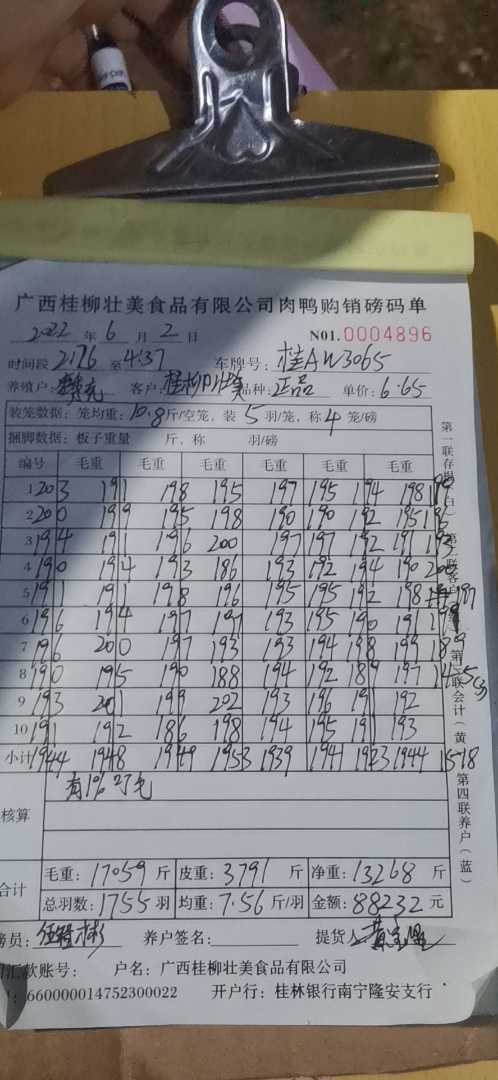 广西桂柳壮美食品有限公司肉鸭购销磅码单
2022 年 6 月 2 日 NO1.0004896
时间段 2:76 至 4:37 车牌号: 桂AW3065
养殖户: 客户: 桂柳壮美 品种: 正品 单价: 6.65
装笼数据: 笼均重: 10.8 斤/空笼, 装 5 羽/笼, 称 4 笼/磅
捆脚数据: 板子重量 斤, 称 羽/磅
编号 毛重 毛重 毛重 毛重 毛重
1 203 191 198 195 197 195 194 198
2 200 199 195 198 190 190 192 195 196
3 194 191 196 200 197 197 192 191 193
4 190 194 193 186 193 192 194 190 200
5 191 191 198 196 195 195 192 198 197
6 196 194 197 197 193 195 190 191
7 196 200 197 193 193 194 198 199 189
8 190 195 190 188 194 192 189 197 145(3)
9 193 201 199 202 193 196 191 192
10 191 192 186 198 194 195 191 193
小计 1944 1948 1949 1953 1939 1941 1923 1944 1518
有1%寸毛
核算
合计
毛重: 17059 斤 皮重: 3791 斤 净重: 13268 斤
总羽数: 1755 羽 均重: 7.56 斤/羽 金额: 88232 元
磅员: 养户签名: 提货人:
汇款账号: 户名: 广西桂柳壮美食品有限公司
660000014752300022 开户行: 桂林银行南宁隆安支行
第一联存根(白) 第二联客户 第三联会计(黄) 第四联养户(蓝)